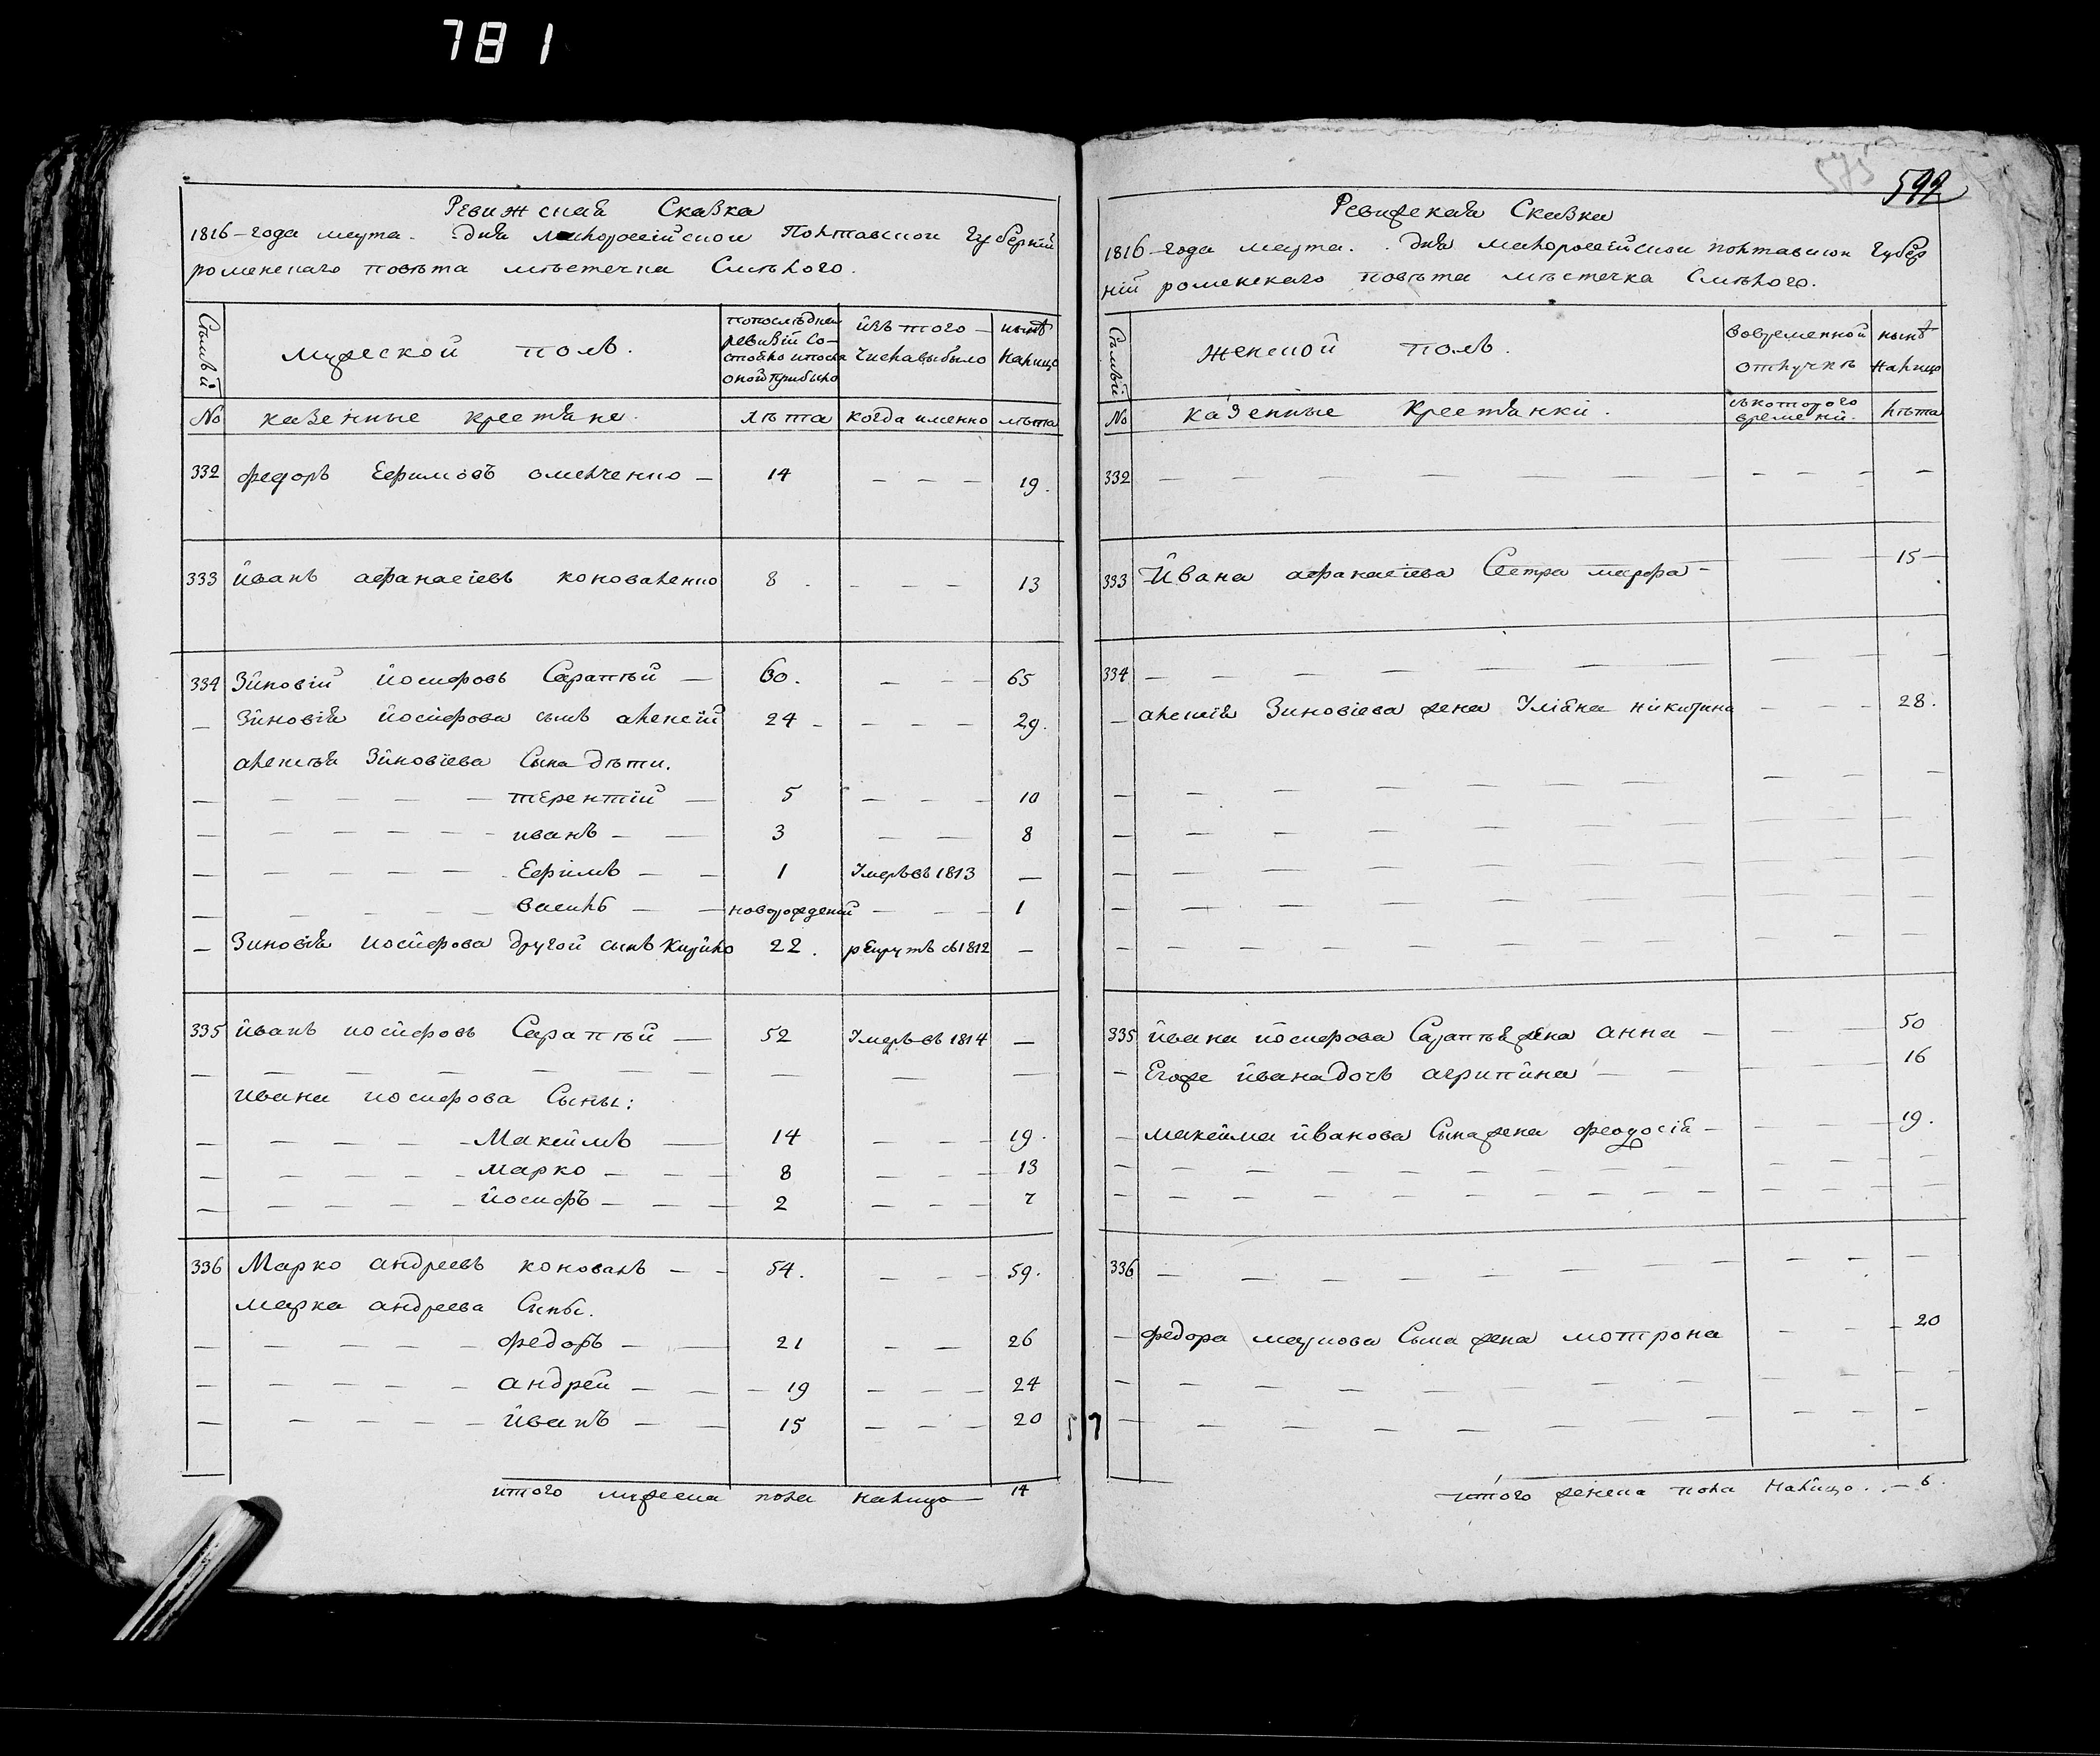 781
Ревижская Сказка
1816-года марта. дня малоросийской Полтавской Губерній
роменскаго повѣта мѣстечка Смѣлого.
Сѣмьй
мужеской полъ.
попоследнеи
ревизій со-
стояло ипосле
оной прибыло
изъ того
числа выбыло
нынѣ
налицо
№ казенные крестяне.
лѣта
когда именно
лѣта
332 федоръ Ефимовъ омелченко — 14 — — — 19.
333 йванъ афанасіевъ коноваленко 8 — — — 13
334 Зйновій йосифовъ Сарапѣй — 60. — — — 65
— Зйновія йосифова сынъ алексій 24 — — — 29.
алексѣя Зйновіева Сына дѣти.
— — — — — терентій — 5 — — — 10
— — — — — иванъ — — 3 — — 8
— — — — — Ефимъ — — 1 Умеръ въ 1813 —
— — — — — василь — — новорожденій — — — 1
— Зиновія йосифова другой сынъ Кирило 22. рекрутъ съ 1812 —
335 йванъ йосифовъ Сарапѣй — 52 Умеръ въ 1814 —
— — — — — — — — — —
ивана йосифова Сыны:
— — — — — Максимъ — 14 — — 19.
— — — — — марко — — 8 — — — 13
— — — — — йосифъ — — — 2 — — — 7
336 Марко андреевъ коновалъ — — 54. — — — 59.
марка андреева Сыны.
— — — — — федоръ — — 21 — — 26
— — — — — андрей — — 19 — — — 24
— — — — — йванъ — — 15 — — — 20
итого мужеска пола налицо — 14
575
Ревижская Сказка
1816-года марта. дня малоросійской полтавской Губер
ній роменскаго повѣта мѣстечка Смѣлого.
Сѣмьй
женской полъ.
вовременной
отлучкѣ
нынѣ
налицо
№ казенные крестянки.
съкоторого
времени.
лѣта
332 — — — — — — — — — — —
333 Ивана афанасіева Сестра марфа — — — 15 —
334 — — — — — — — — — —
— алексія Зиновіева жена Уліяна никитина — — — 28.
— — — — — — — — — — —
— — — — — — — — — —
— — — — — — — — — — —
— — — — — — — — — — —
— — — — — — — — — — —
335 йвана йосифова Сарапѣя жена анна — — — 50
— Егоже йвана дочь агрипина — — — — — 16
— максима йванова Сына жена феодосія — — — — 19.
— — — — — — — — — — — — —
— — — — — — — — — — — — —
336 — — — — — — — — — — —
— федора маркова Сына жена мотрона — — — 20
— — — — — — — — — — —
— — — — — — — — — — —
итого женска пола налицо. . — 6.